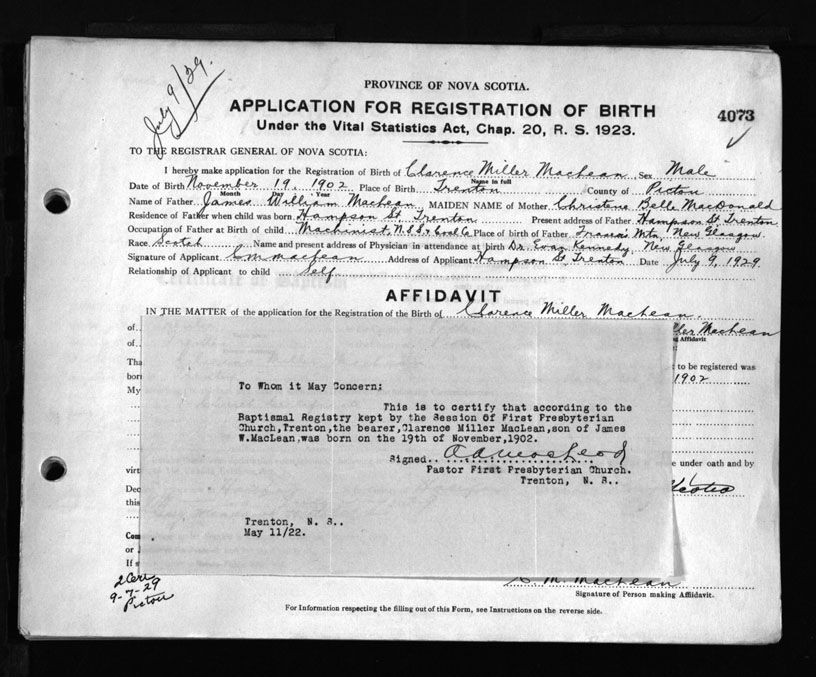 July 9/29.
PROVINCE OF NOVA SCOTIA.
APPLICATION FOR REGISTRATION OF BIRTH
4073
Under the Vital Statistics Act, Chap. 20, R. S. 1923.
TO THE REGISTRAR GENERAL OF NOVA SCOTIA:
I hereby make application for the Registration of Birth of Clarence Miller MacLean Sex Male
Name in full
Date of Birth November 19, 1902 Place of Birth Trenton County of Pictou
Month Day Year
Name of Father James William MacLean MAIDEN NAME of Mother Christene Belle MacDonald
Residence of Father when child was born Hampson St. Trenton Present address of Father Hampson St, Trenton
Occupation of Father at Birth of child Machinist, N.S.S. & Coal Co Place of Birth of Father Frasers Mtn, New Glasgow
Race Scotch Name and present address of Physician in attendance at birth Dr. Evan Kennedy, New Glasgow
Signature of Applicant C M MacLean Address of Applicant Hampson St Trenton Date July 9, 1929
Relationship of Applicant to child Self
AFFIDAVIT
IN THE MATTER of the application for the Registration of the Birth of Clarence Miller MacLean.
of
ller MacLean
ng Affidavit
of
Tha
t to be registered was
born
1902
My
To Whom it May Concern;
This is to certify that according to the
Baptismal Registry kept by the Session Of First Presbyterian
Church,Trenton,the bearer,Clarence Miller MacLean,son of James
W.MacLean,was born on the 19th of November,1902.
Signed..
Pastor First Presbyterian Church.
Trenton, N. S..
virt
e under oath and by
Dec
this
Trenton, N. S..
May 11/22.
Com
or
If
2 Cert
9-7-29
Pictou
C. M. MacLean
Signature of Person making Affidavit.
For Information respecting the filling out of this Form, see Instructions on the reverse side.